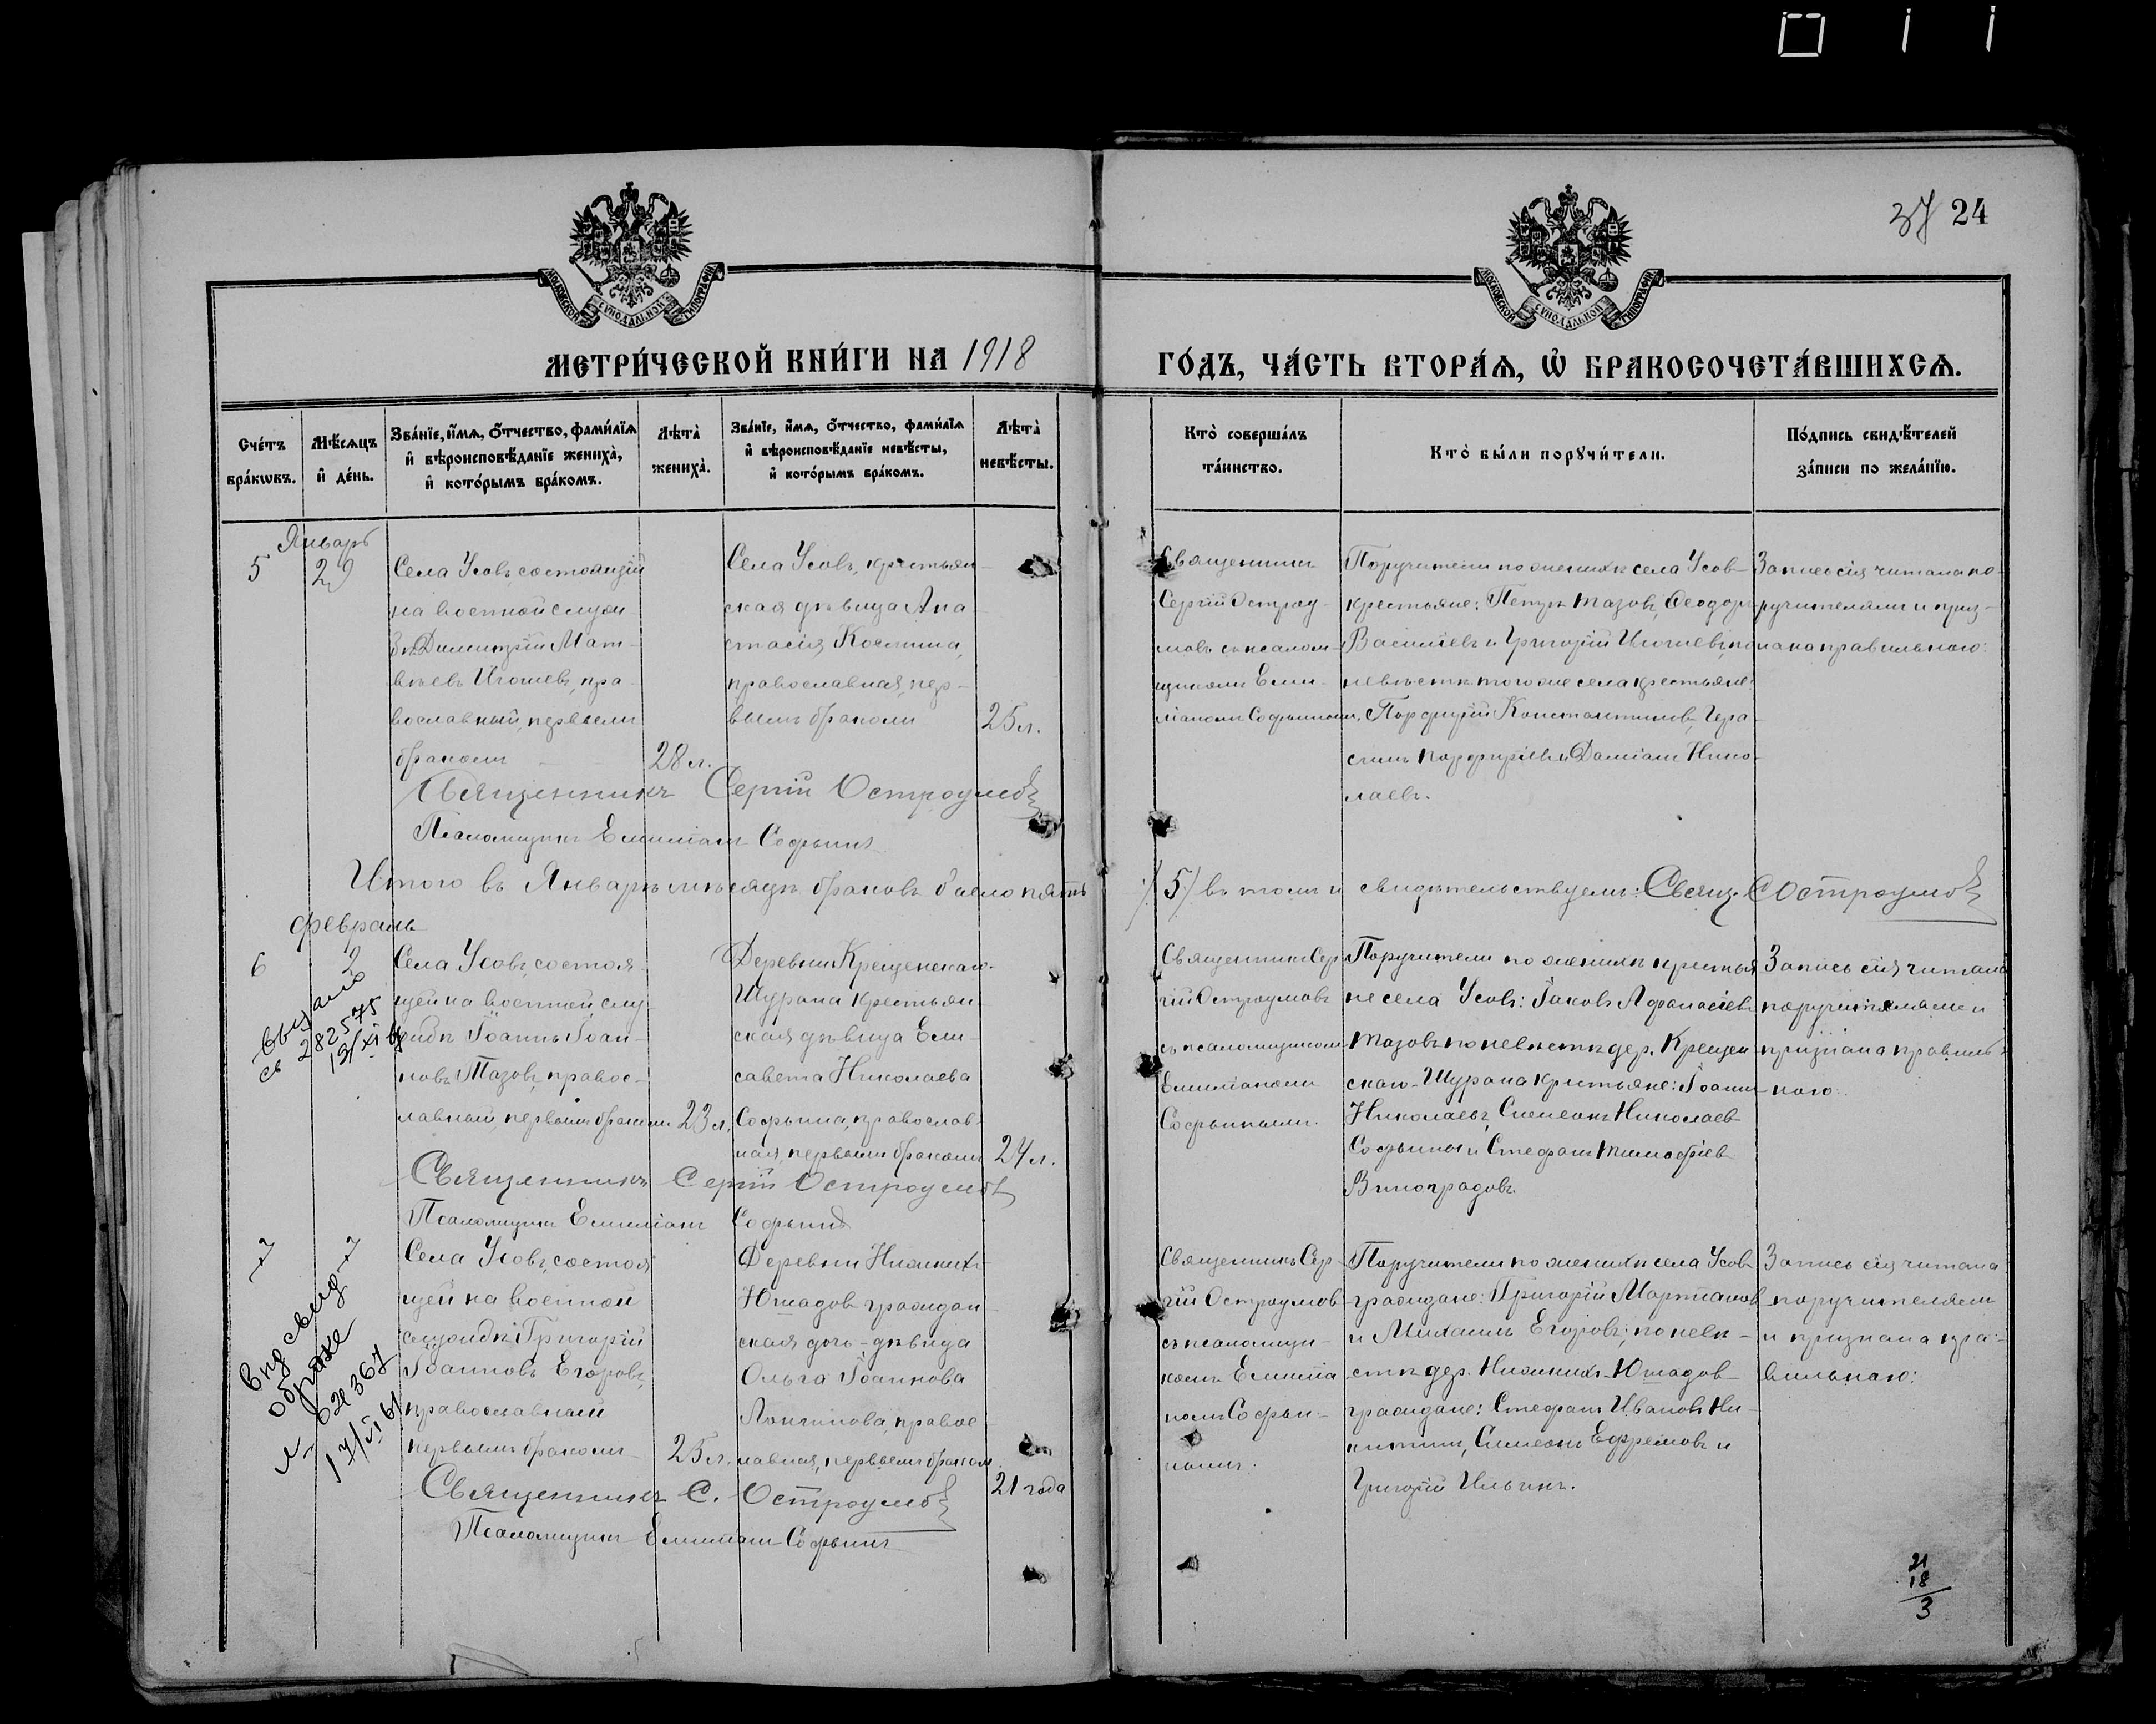 37 24
МЕТРИ́ЧЕСКОЙ КНИ́ГИ НА 1918
ГО́ДЪ, ЧА́СТЬ ВТОРА́Ѧ, Ѡ҆ БРАКОСОЧЕТА́ВШИХСѦ.
Сче́тъ бра́кѡвъ.
Мѣ́сѧцъ и҆ де́нь.
Зва́нїе, и҆́мѧ, о҆́тчество, фами́лїѧ
и҆ вѣроисповѣ́данїе жениха̀,
и҆ кото́рымъ бра́комъ.
Лѣта̀ жениха̀.
Зва́нїе, и҆́мѧ, о҆́тчество, фами́лїѧ
и҆ вѣроисповѣ́данїе невѣ́сты,
и҆ кото́рымъ бра́комъ.
Лѣта̀ невѣ́сты.
Кто̀ соверша́лъ
та́инство.
Кто̀ бы́ли порꙋчи́тели.
По́дпись свидѣ́телей
за́писи по жела́нїю.
Январь
5
29
Села Усовъ состоящій
на военной служ-
бѣ Димитрій Мат-
вѣевъ, пра-
вославный, первымъ
бракомъ
28 л.
Села Усовъ, крестьян-
ская дѣвица Ана-
стасія Костина,
православная, пер-
вымъ бракомъ
25 л.
Священникъ
Сергій Остроу-
мовъ съ псалом-
щикомъ Еми-
ліаномъ Софьинымъ
Поручители по женихѣ села Усовъ
крестьяне: Петръ Тазовъ, Ѳеодоръ
Васильевъ и Григорій по
невѣстѣ того же села крестьяне:
Порфирій Константиновъ, Гера-
симъ Порфирьевъ и Даміанъ Нико-
лаевъ.
Запись сія читана по-
ручителями и приз-
нана правильною:
Священникъ Сергій Остроумовъ
Псаломщикъ Емиліанъ Софьинъ
Итого въ Январѣ мѣсяцѣ браковъ было пять
/5/ въ томъ и свидѣтельствуемъ: Свящ. С Остроумовъ
Февраль
6
2
выдано
св 282575
13/XI
Села Усовъ, состоя-
щій на военной слу-
жбѣ Іоаннъ Іоан-
новъ Тазовъ, правос-
лавный, первымъ бракомъ
23 л.
Деревни Крещенскаго-
Шурана крестьян-
ская дѣвица Ели-
савета Николаева
Софьина, православ-
ная, первымъ бракомъ
24 л.
Священникъ Сер-
гій Остроумовъ
съ псаломщикомъ
Емиліаномъ
Софьинымъ.
Поручители по женихѣ крестья-
не села Усовъ: Іаковъ Аѳанасіевъ
Тазовъ по невѣстѣ дер. Крещен-
скаго-Шурана крестьяне: Іоаннъ
Николаевъ, Симеонъ Николаевъ
Софьины и Стефанъ Тимоѳіевъ
Виноградовъ.
Запись сія читана
поручителями и
признана правиль-
ною:
Священникъ Сергій Остроумовъ
Псаломщикъ Емиліанъ Софьинъ
7
7
о браке
17/II 61
Села Усовъ, состоя-
щій на военной
службѣ Григорій
Іоанновъ Егоровъ,
православный
первымъ бракомъ
25 л.
Деревни Нижнихъ-
Юшадовъ граждан-
ская дочь-дѣвица
Ольга Іоаннова
Лонгинова, правос-
лавная, первымъ бракомъ.
21 года
Священникъ Сер-
гій Остроумовъ
съ псаломщи-
комъ Емилiа-
номъ Софьи-
нымъ.
Поручители по женихѣ села Усовъ
граждане: Григорій Мартиановъ
и Михаилъ Егоровъ; по невѣ-
стѣ дер. Нижнихъ-Юшадовъ
граждане: Стефанъ Ивановъ Ни-
китинъ, Симеонъ Ефремовъ и
Григорій Ильинъ.
Запись сія читана
поручителями
и признана пра-
вильною:
Священникъ С. Остроумовъ
Псаломщикъ Емиліанъ Софьинъ
21
18
3